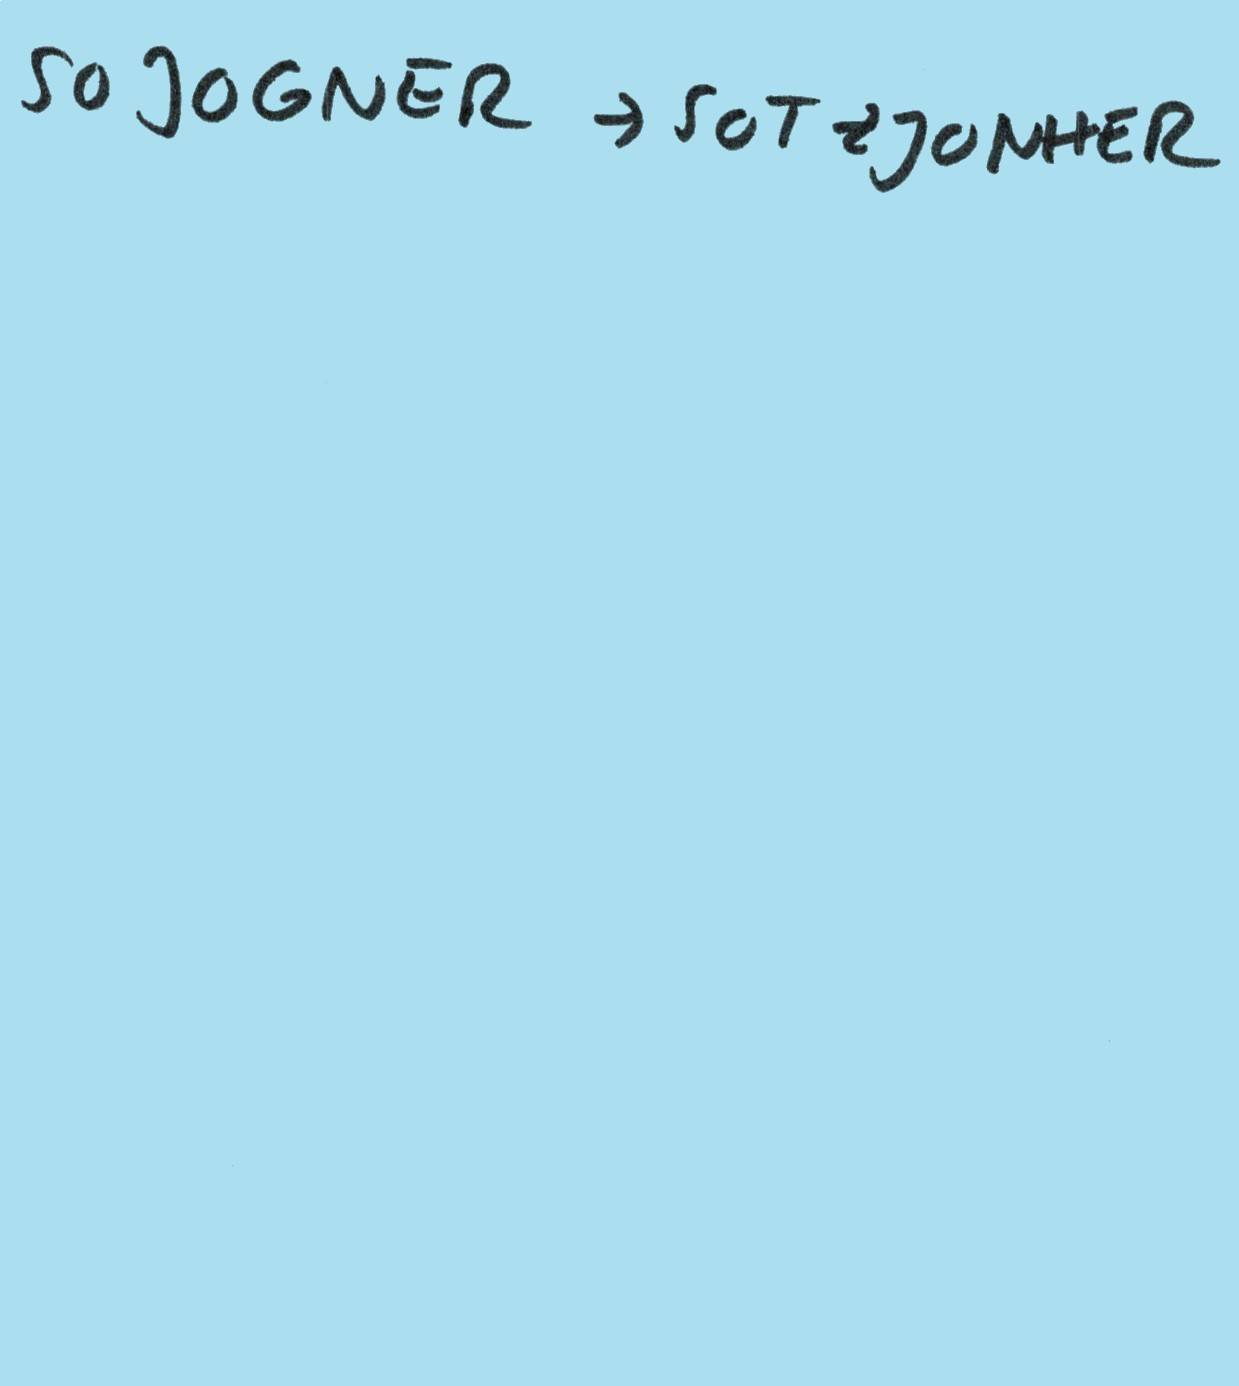 SO JOGNER → SOT & JONHER